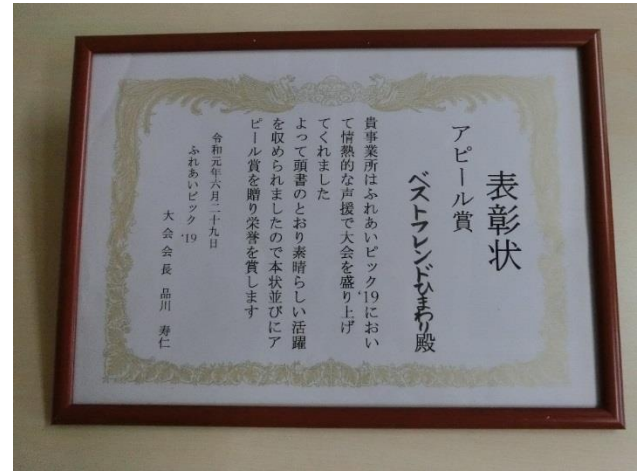 表彰状
アピール賞
ベストフレンドひまわり殿
貴事業所はふれあいピック'19におい
て情熱的な声援で大会を盛り上げ
てくれました
よって頭書のとおり素晴らしい活躍
を収められましたので本状並びにア
ピール賞を贈り栄誉を賞します
令和元年六月二十九日
ふれあいピック'19
大会会長 品川 寿仁